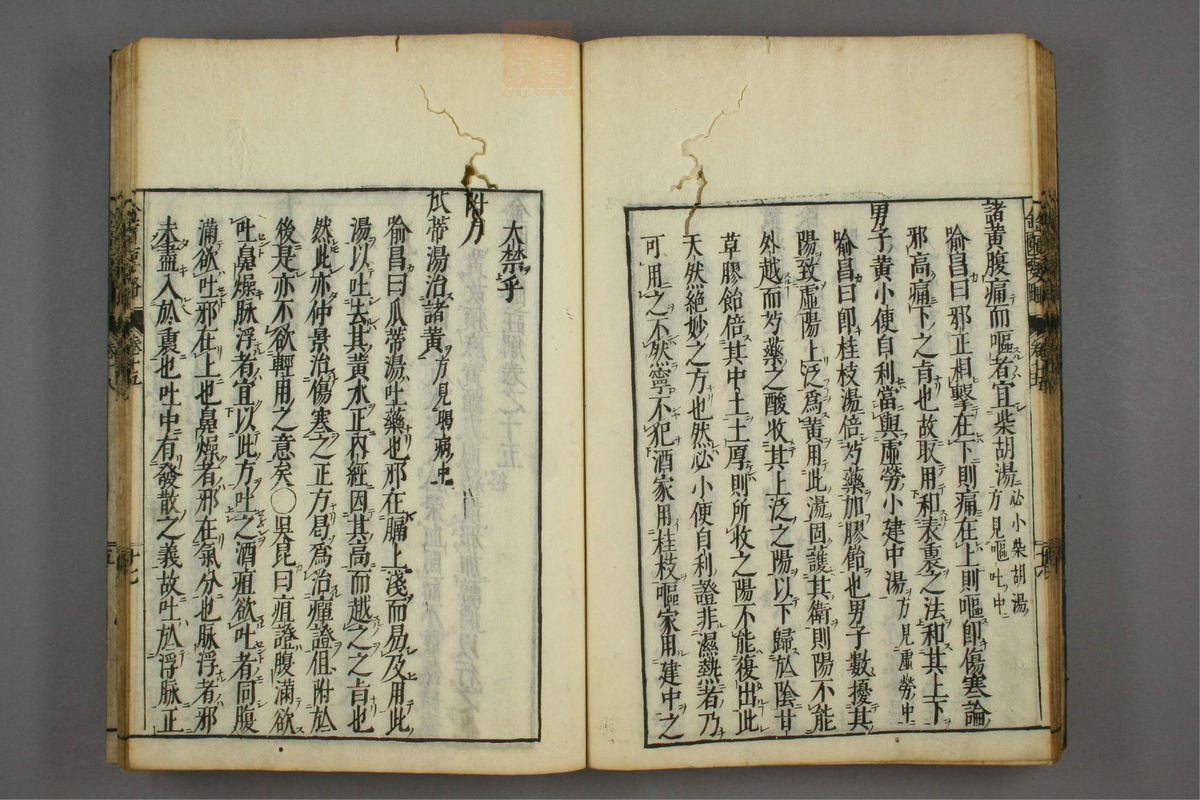 諸黃腹痛而嘔者宜柴胡湯必小柴胡湯方見嘔吐中
喻昌曰邪正相擊在下則痛在上則嘔即傷寒論
邪高痛下之旨也故取用和表裏之法和其上下
男子黃小便自利當與虛勞小建中湯方見虛勞中
喻昌曰即桂枝湯倍芍藥加膠飴也男子數擾其
陽致虛陽上泛爲黃用此湯固護其衛則陽不能
外越而芍藥之酸收其上泛之陽以下歸於陰甘
草膠飴倍其中土土厚則所收之陽不能復出此
天然絶妙之方也然必小便自利證非濕熱者乃
可用之不然寧不犯酒家用桂枝嘔家用建中之
大禁乎
附方
瓜蒂湯治諸黃方見暍病中
喻昌曰瓜蒂湯吐藥也邪在膈上淺而易及用此
湯以吐去其黃水正內經因其高而越之之旨也
然此亦仲景治傷寒之正方曷爲治癉證但附於
後是亦不欲輕用之意矣○吳崑曰疸證腹滿欲
吐鼻燥脉浮者宜以此方吐之酒疸欲吐者同腹
滿欲吐邪在上也鼻燥者邪在氣分也脉浮者邪
未盡入於裏也吐中有發散之義故吐於浮脉正